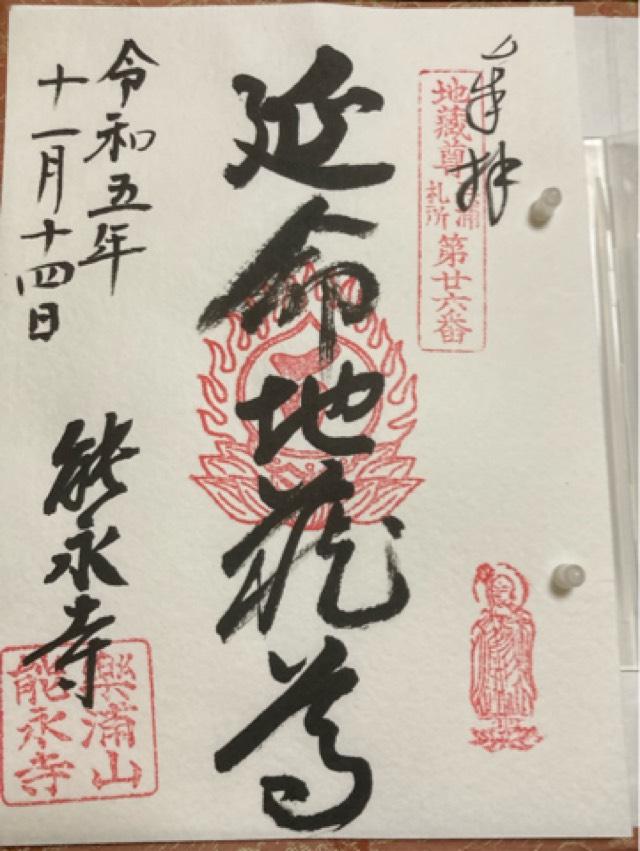 奉拝
地藏尊
浦
札所
第廿六番
延命地蔵尊
令和五年
十一月十四日
能永寺
樂浦山
能永寺